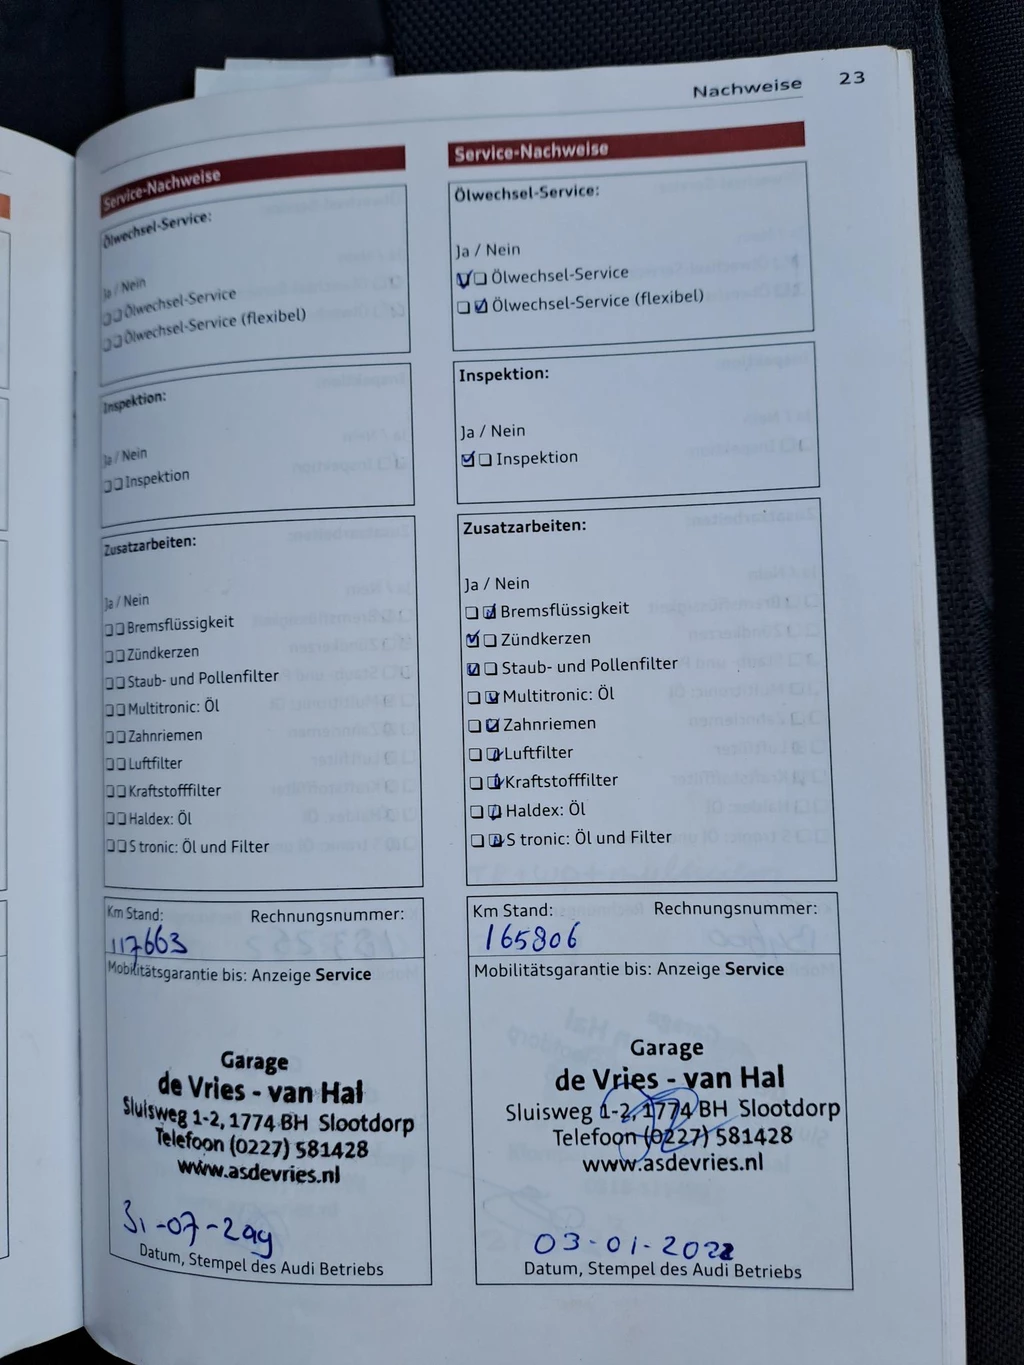 Nachweise 23
Service-Nachweise
Ölwechsel-Service:
Ja / Nein
Ölwechsel-Service
Ölwechsel-Service (flexibel)
Inspektion:
Ja / Nein
Inspektion
Zusatzarbeiten:
Ja / Nein
Bremsflüssigkeit
Zündkerzen
Staub- und Pollenfilter
Multitronic: Öl
Zahnriemen
Luftfilter
Kraftstofffilter
Haldex: Öl
S tronic: Öl und Filter
Km Stand: Rechnungsnummer:
117663
Mobilitätsgarantie bis: Anzeige Service
Garage
de Vries - van Hal
Sluisweg 1-2, 1774 BH Slootdorp
Telefoon (0227) 581428
www.asdevries.nl
31-07-
Datum, Stempel des Audi Betriebs
Service-Nachweise
Ölwechsel-Service:
Ja / Nein
Ölwechsel-Service
Ölwechsel-Service (flexibel)
Inspektion:
Ja / Nein
Inspektion
Zusatzarbeiten:
Ja / Nein
Bremsflüssigkeit
Zündkerzen
Staub- und Pollenfilter
Multitronic: Öl
Zahnriemen
Luftfilter
Kraftstofffilter
Haldex: Öl
S tronic: Öl und Filter
Km Stand: Rechnungsnummer:
165806
Mobilitätsgarantie bis: Anzeige Service
Garage
de Vries - van Hal
Sluisweg 1-2, 1774 BH Slootdorp
Telefoon (0227) 581428
www.asdevries.nl
03-01-2022
Datum, Stempel des Audi Betriebs